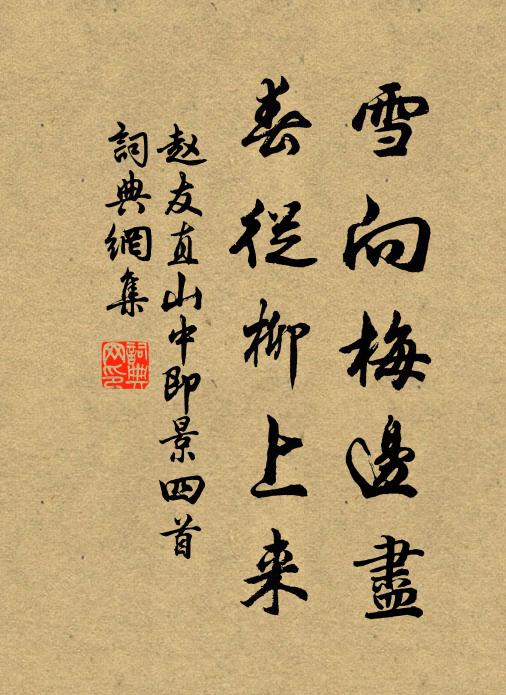 雪向梅邊盡
春從柳上来
赵友直山中即景四首
詞典網集
詞典网印